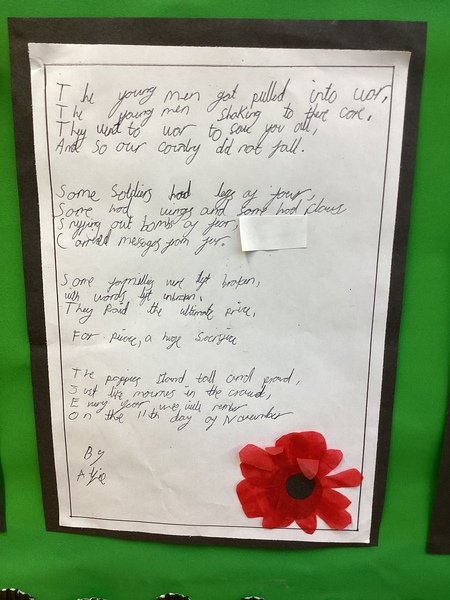 The young men got pulled into wor,
The young men shaking to there core,
They went to wor to save you all,
And so our country did not fall.
Some Soldiers had legs of four,
Some had wings and some had claws
Snyffing out bombs of fear,
Carried messages from far.
Some were left broken,
with words left unbroken.
They Paid the ultimate price,
For a huge Sacrifice
The poppies stand tall and proud,
Just like in the crowd,
Every year we will remember
On the 11th day of November
By